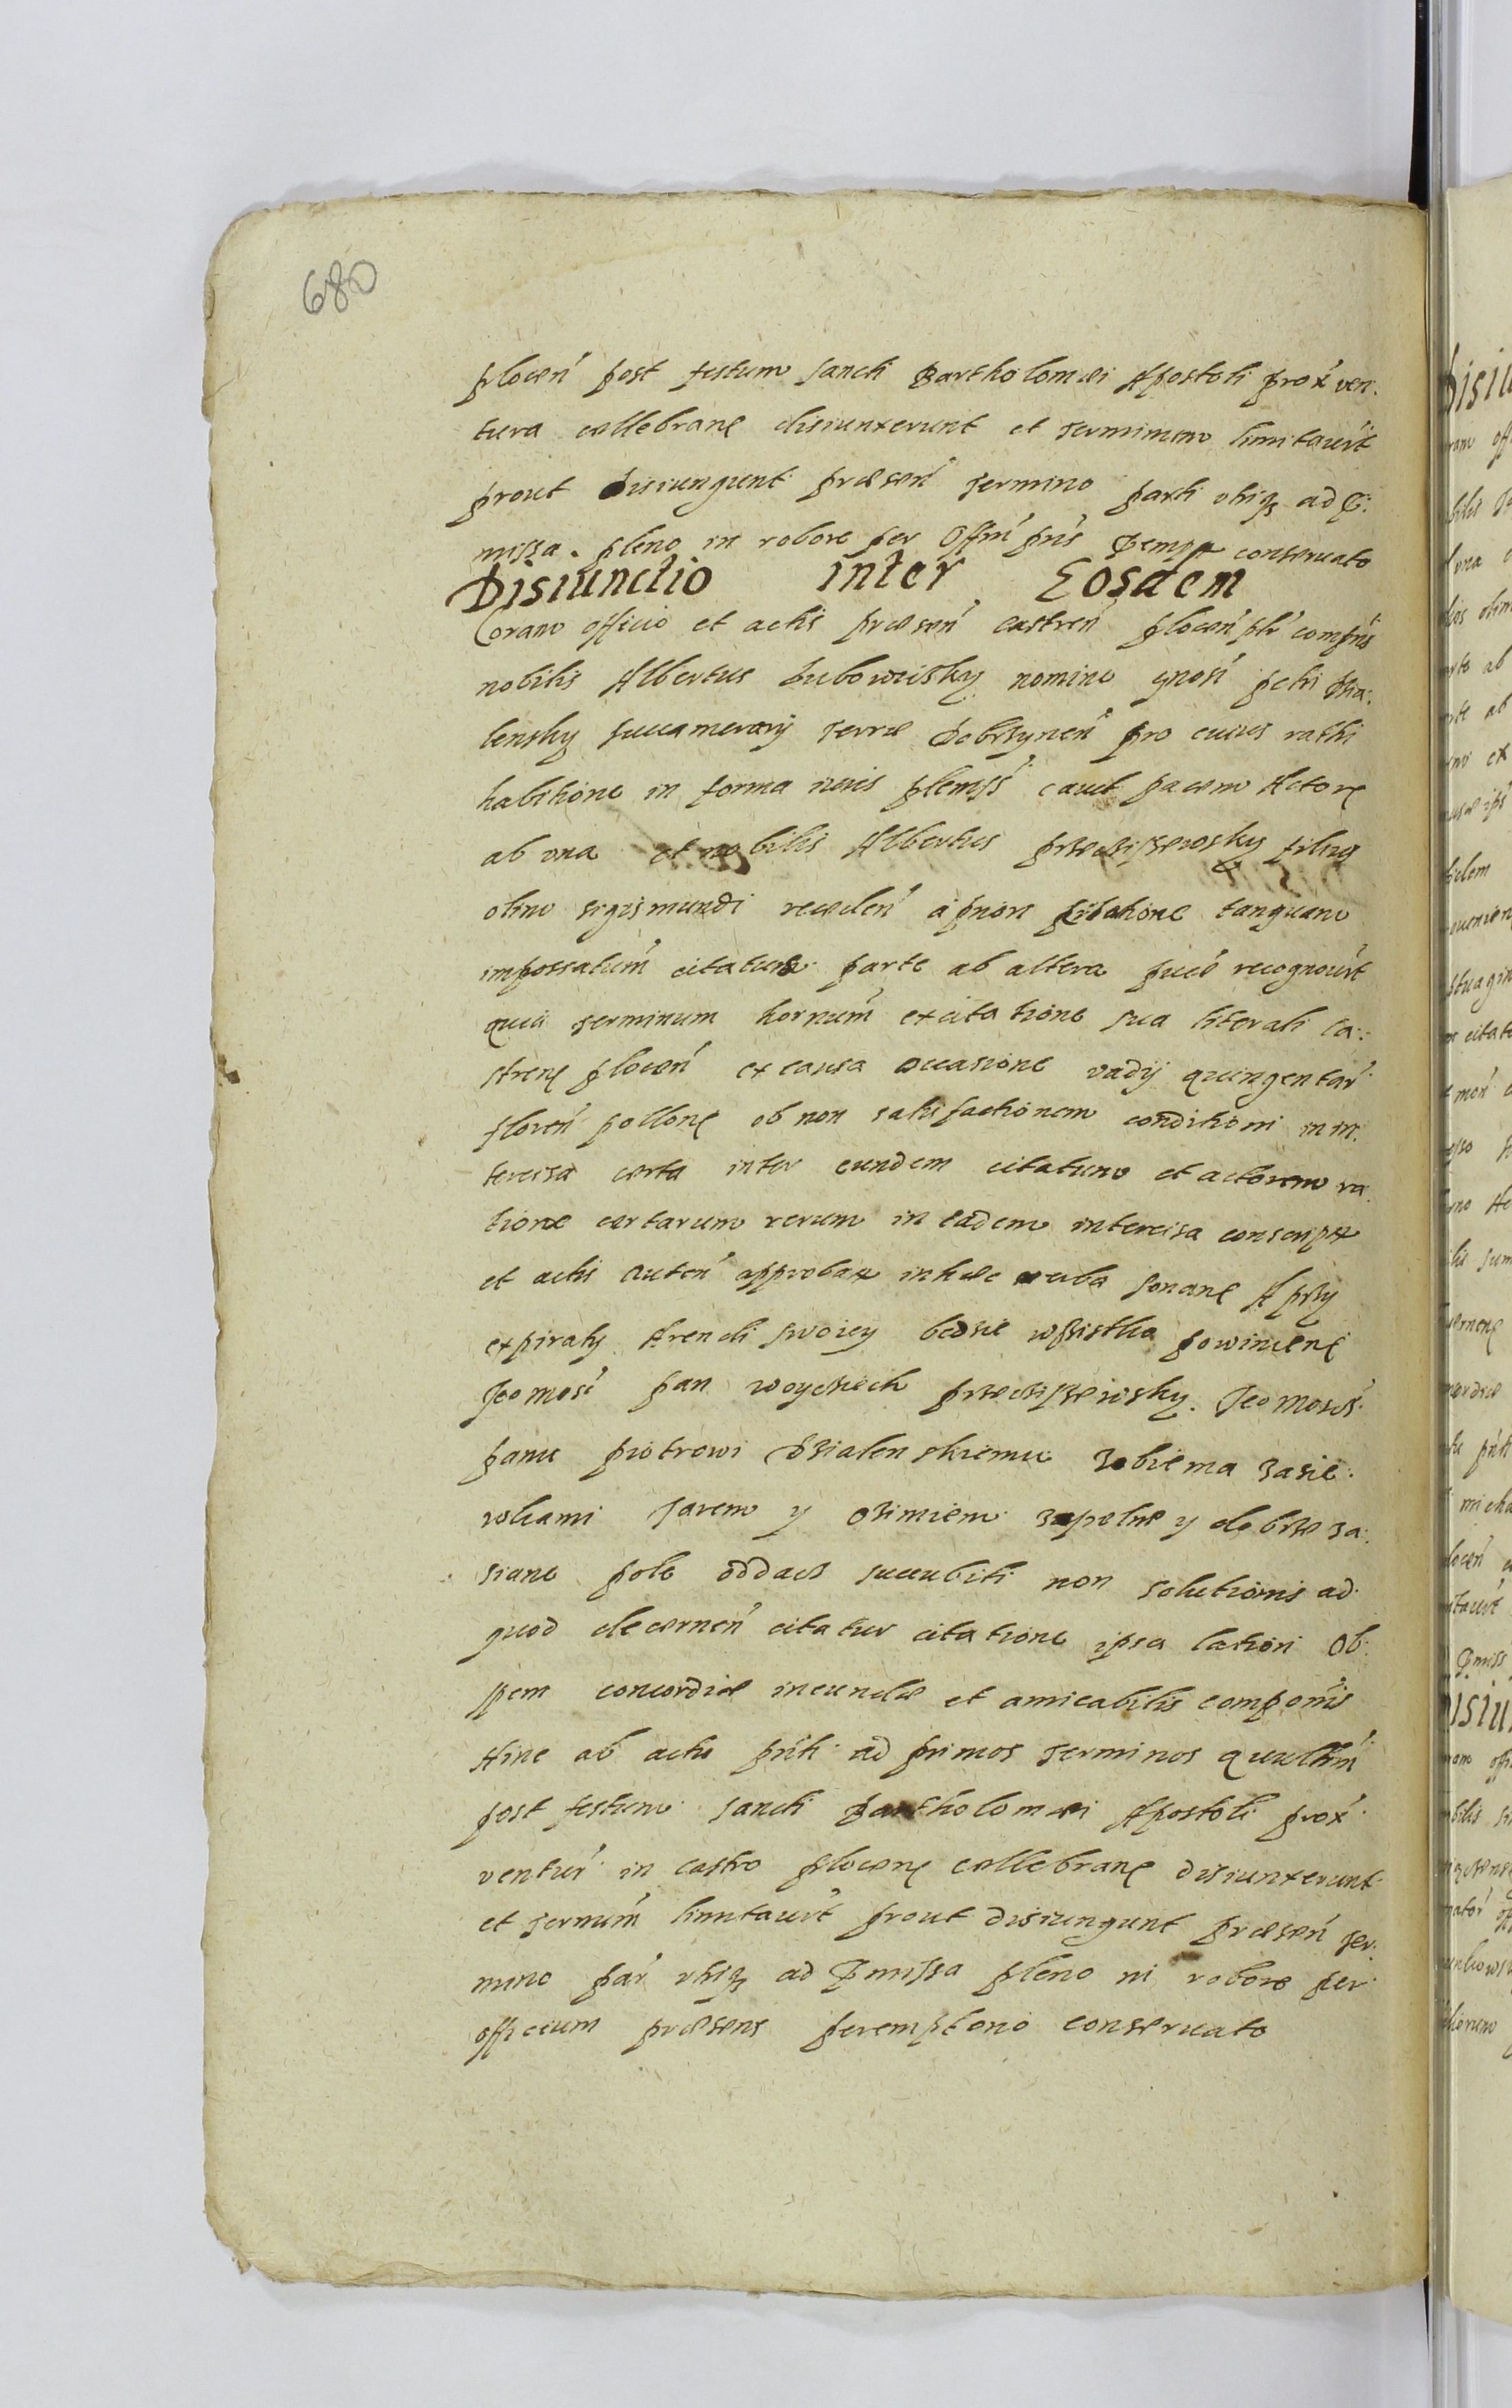 680
plocen̄ post festum sancti Bartholomæi Apostoli prox̄ ven:
tura cællebranḙ disiunxerunt et terminum limitaver̄t
prout disiungunt præsen̄ termino parti vtriqȝ ad p̄:
missa. pleno in robore per Offm̄ pn̄s pempt conseruato
Disiunctio inter Eosdem
Coram officio et actis præsen̄ castren̄ plocen̄ plr̄ compn̄s
nobilis Albertus Lubowiczky nomine gnosi petri Dzia:
lensky succamerarij terræ Dobrzynen̄ pro cuius rathi
habitione in forma iuris plemss̄ cauet pacem Actorḙ
ab vna et nobilis Albertus przeciszewsky filius
olim sigismundi receden̄ a priori tanquam
impossatum̄ citatus parte ab altera recognouer̄t
quia terminum hornum̄ ex citatione sua literali ca:
strenḙ plocen̄ ex causa occasione vadij quingentar̄
floren̄ pollonḙ ob non satisfactionem conditioni in in:
tercisa certa inter eundem citatum et actorem ra:
tione certarum rerum in eadem intercisa conscript
et actis auten̄ approbat in hæc verba sonanḙ A przy
expiraty Arendi swoiey bedzie wszistko powinienḙ
Jeo mosc̄ pan woyciech przeciszewsky. Jeo Mosci
panu piotrowi Dzialenskiemu zobiema zasie:
wkami Jarem y ozimiem zupelne y dobrze za:
siane pole oddacz succubiti non solutionis ad
quod decernen̄ citatur citatione ipsa lation Ob:
spem concordiæ ineundæ et amicabilis componis
Hinc ab actu pn̄ti ad primos terminos quærlm̄
post festum sancti Bartholomæi Apostoli prox̄
ventur̄ in castro plocenḙ cællebranḙ disiunxerunt
et termim̄ limitauer̄t prout disiungunt præsen̄ ter:
mino par̄ vtriqȝ ad p̄missa pleno ni robore per
officium præsens peremptorio conseruato